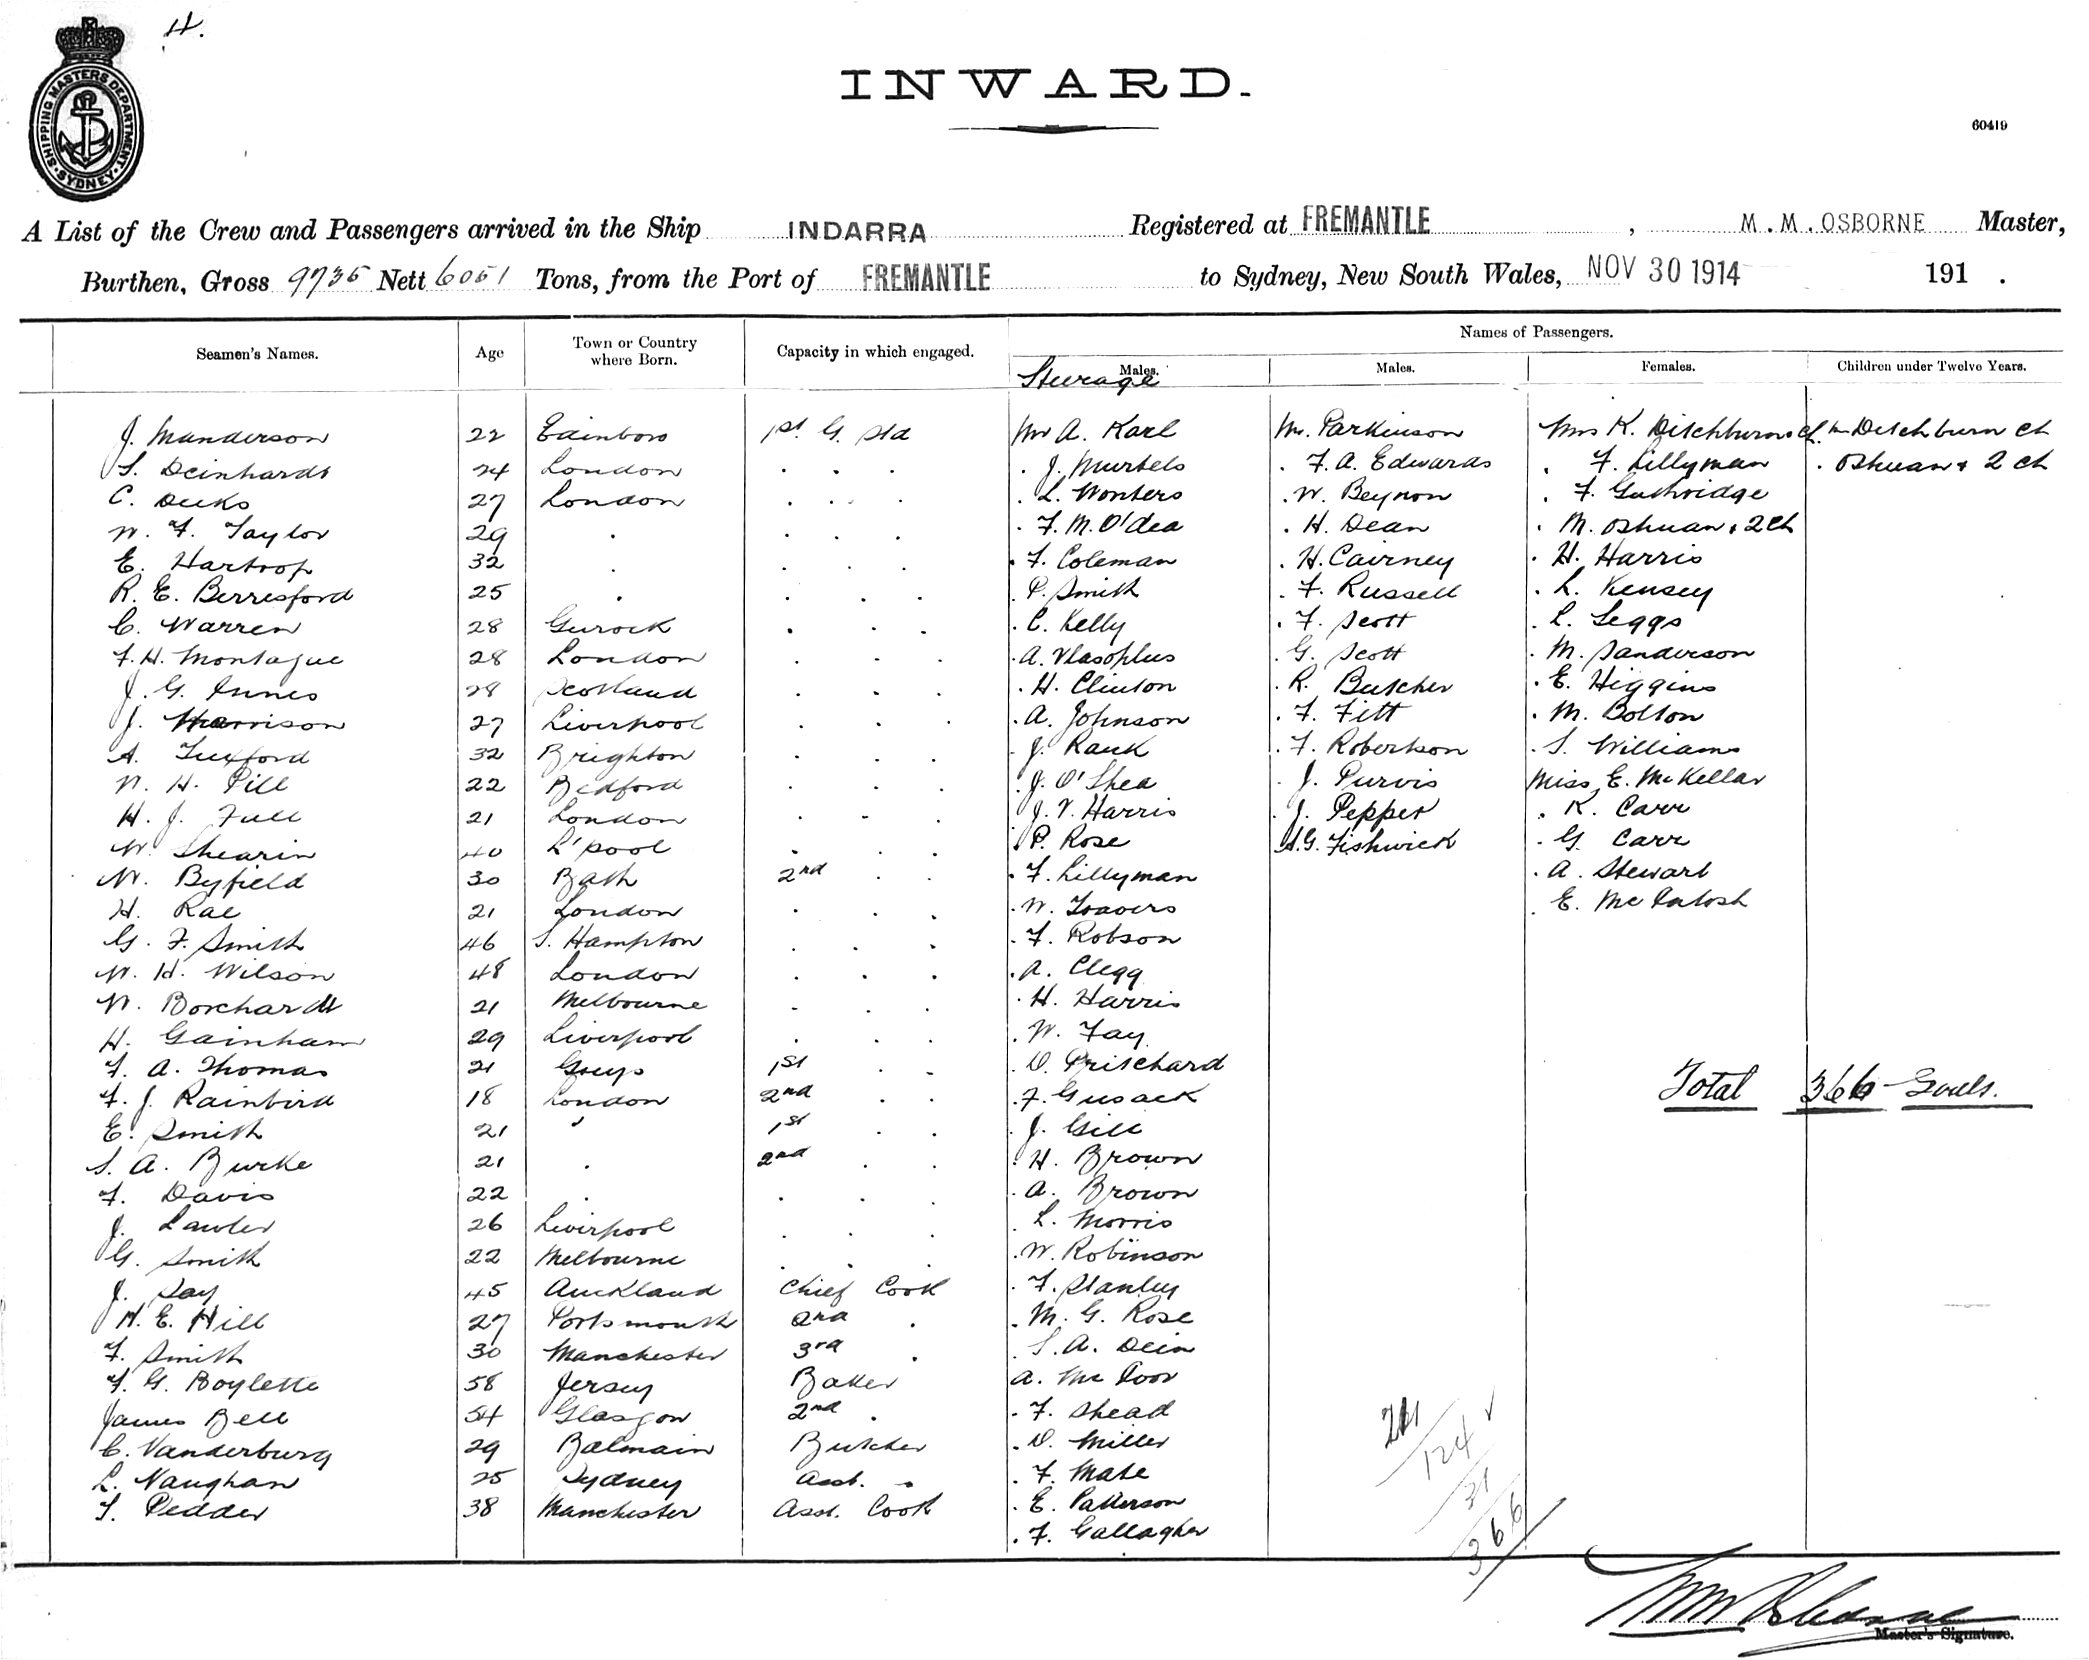 H.
SHIPPING MASTERS DEPARTMENT
SYDNEY
INWARD.
60419
A List of the Crew and Passengers arrived in the Ship INDARRA Registered at FREMANTLE, M.M. OSBORNE Master,
Burthen, Gross 9735 Nett 6051 Tons, from the Port of FREMANTLE to Sydney, New South Wales, NOV 30 1914 191 .
Names of Passengers.
Seamen's Names. Age Town or Country where Born. Capacity in which engaged. Males. Males. Females. Children under Twelve Years.
Steerage
J. Manderson 22 Edinboro 1st G. Std Mr A. Karl Mr. Parkinson Mrs K. Ditchburn & ch. Ditchburn ch
S. Deinhardt 24 London . . . . J. Murtels . F. A. Edwards . F. Lillyman . Oshuan & 2 ch
C. Deeks 27 London . . . . L. Wonters . W. Beynon . F. Guthridge
W. F. Taylor 29 . . . . . F. M. O'dea . H. Dean . M. Oshuan & 2 ch
E. Hartrop 32 . . . . . F. Coleman . H. Cairney . H. Harris
R. E. Berresford 25 . . . . . P. Smith . F. Russell . L. Kensey
C. Warren 28 Gurock . . . . C. Kelly . F. Scott . L. Leggs
F. H. Montague 28 London . . . . A. Vlasoplus . G. Scott . M. Sanderson
J. G. Innes 28 Scotland . . . . H. Clinton . R. Butcher . E. Higgins
J. Morrison 27 Liverpool . . . . A. Johnson . F. Fitt . M. Bolton
A. Tuxford 32 Brighton . . . . J. Rank . F. Robertson . S. Williams
W. H. Pill 22 Bedford . . . . J. O'Shea . J. Purvis Miss E. McKellar
H. J. Full 21 London . . . . J. V. Harris . J. Pepper . K. Carr
W. Shearin 40 L'pool . . . . P. Rose A.G. Fishwick . G. Carr
W. Byfield 30 Bath 2nd . . . F. Lillyman . A. Stewart
H. Rae 21 London . . . . W. Travers . E. McIntosh
G. F. Smith 46 S. Hampton . . . . F. Robson
W. H. Wilson 48 London . . . . A. Clegg
W. Borchardt 21 Melbourne . . . . H. Harris
H. Gainham 29 Liverpool . . . . W. Fay
F. A. Thomas 21 Grays 1st . . . D. Pritchard
F. J. Rainbird 18 London 2nd . . . F. Gusack
Total 366 Souls.
E. Smith 21 " 1st . . . J. Gill
S. A. Burke 21 . 2nd . . . H. Brown
F. Davis 22 . . . . . A. Brown
J. Lawler 26 Liverpool . . . . L. Morris
G. Smith 22 Melbourne . . . . W. Robinson
J. Say 45 Auckland Chief Cook . F. Stanley
H. E. Hill 27 Portsmouth 2nd . . M. G. Rose
F. Smith 30 Manchester 3rd . . S. A. Dein
F. G. Boylette 58 Jersey Baker A.
James Bell 54 Glasgow 2nd . . F. Shead
C. Vanderburg 29 Balmain Butcher . D. Miller
L. Vaughan 25 Sydney Asst. . . F. Mate
T. Pedder 38 Manchester Asst. Cook . E. Patterson
. F. Gallagher
211
124
31
366
Master's Signature.